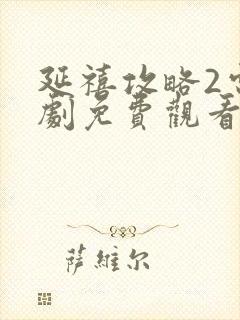 延禧攻略2
劇免費觀看
萨維尔